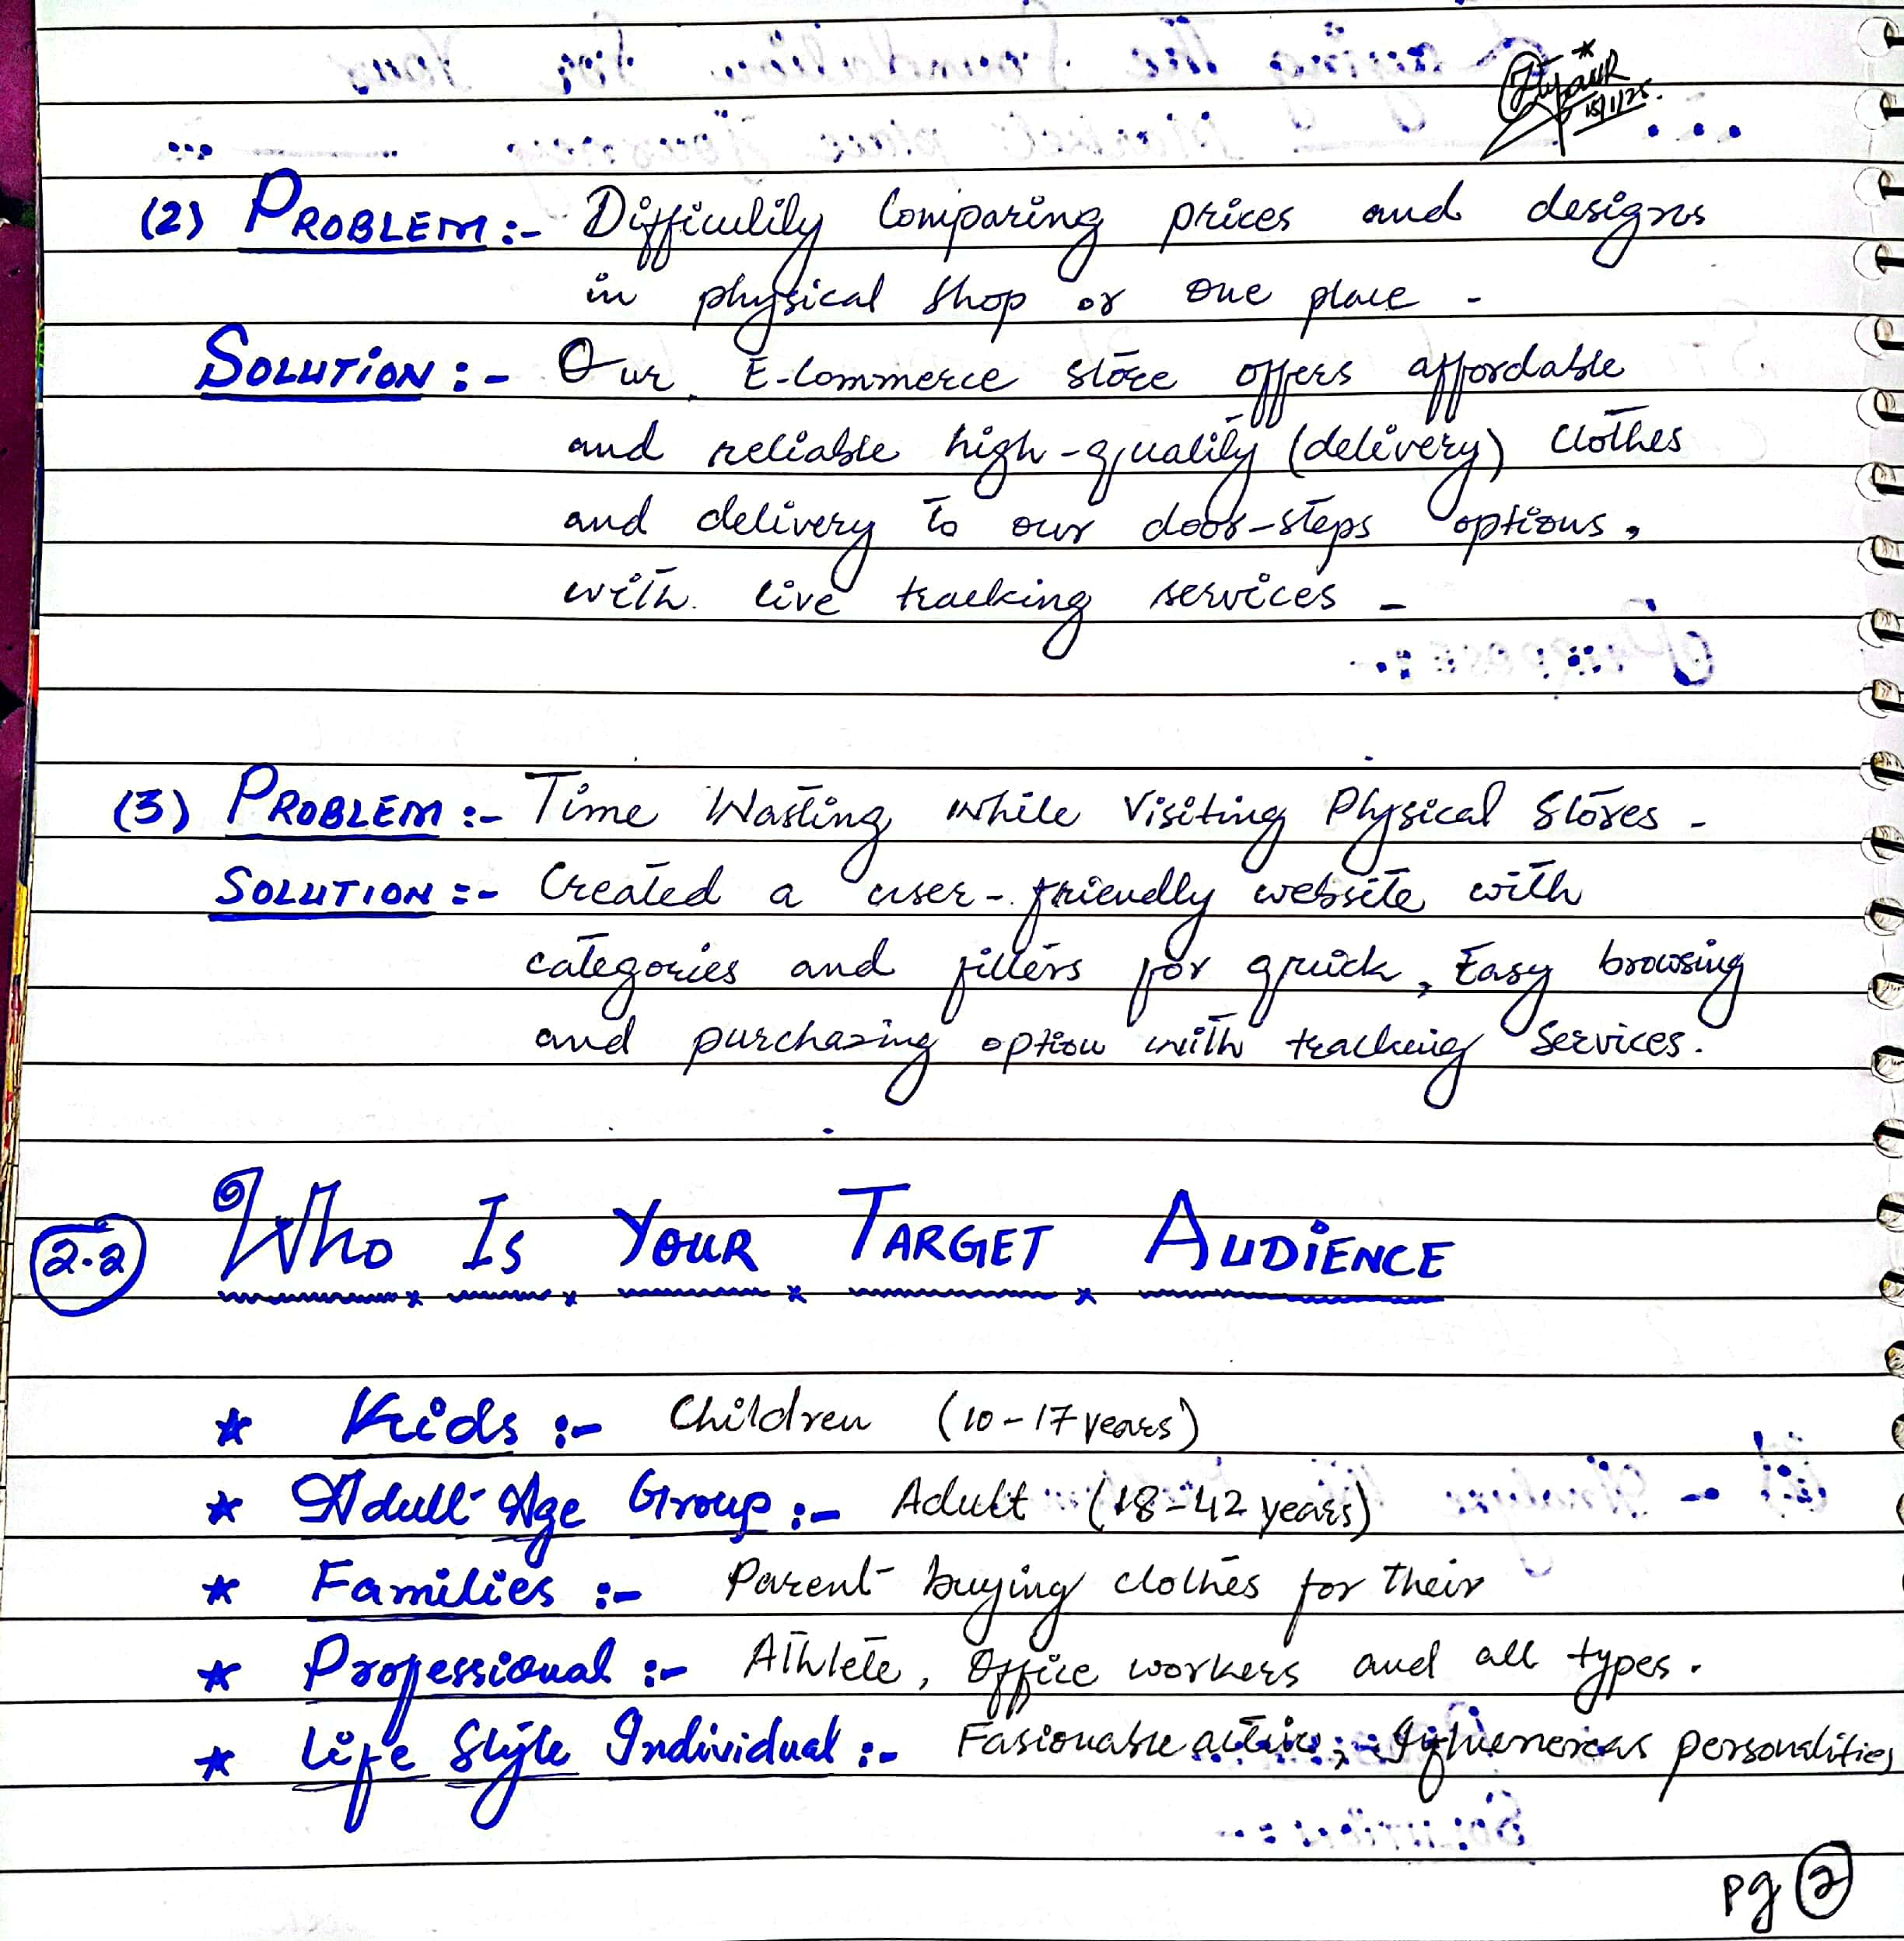 15/1/25.
(2) PROBLEM :- Difficulily Comparing prices and designs
in physical shop or one place -
SOLUTION :- Our E-Commerce store offers affordable
and reliable high-quality (delivery) Clothes
and delivery to our door-steps options,
with live tracking services -
(3) PROBLEM :- Time Wasting while Visiting Physical Stores -
SOLUTION :- Created a user-friendly website with
categories and filters for quick, Easy browsing
and purchasing option with tracking Services.
2.2 WHO IS YOUR TARGET AUDIENCE
* Kids :- Children (10-17 years)
* Adult Age Group :- Adult (18-42 years)
* Families :- Parent buying clothes for their
* Professional :- Athlete, Office workers and all types.
* Life Style Individual :- Fasionable personalities
pg 2